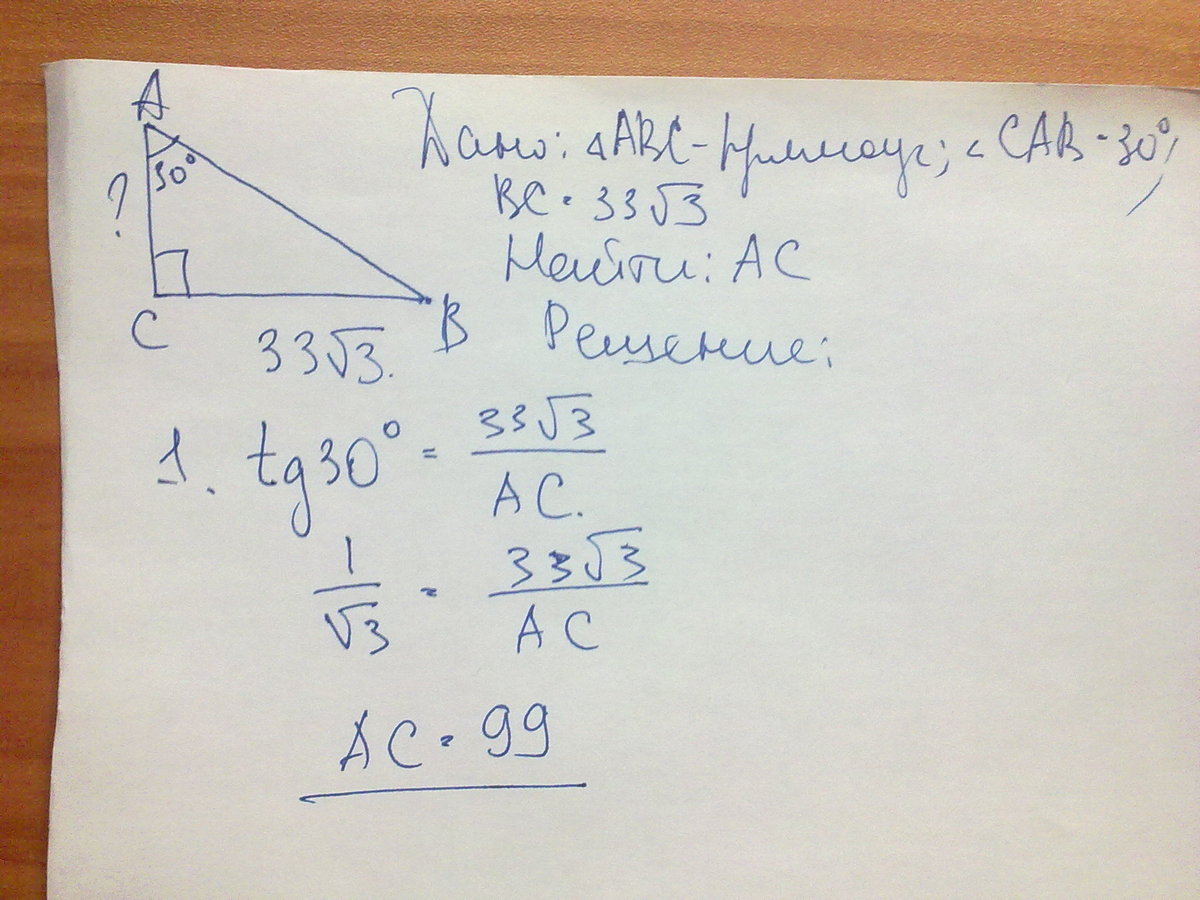 A
30°
?
C
B
33√3.
Дано: △ABC - прямоуг; ∠CAB = 30°;
BC = 33√3
Найти: AC
Решение:
1. tg30° = 33√3 / AC.
1/√3 = 33√3 / AC
AC = 99